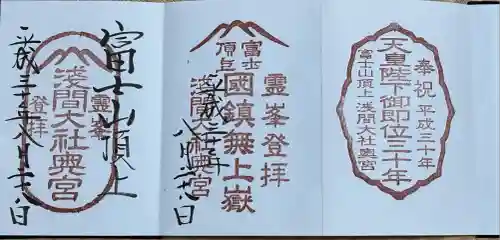 奉祝 平成三十年
天皇陛下御即位三十年
富士山頂上 浅間大社奥宮
富士
頂上
霊峯登拝
国鎮無上嶽
浅間大社奥宮
平成三十年
八月二十六日
富士山頂上
霊峯
浅間大社奥宮
登拝
平成三十年八月二十六日